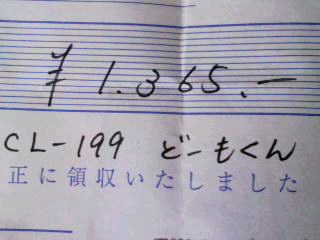 ¥1.365.—
CL-199 どーもくん
正に領収いたしました